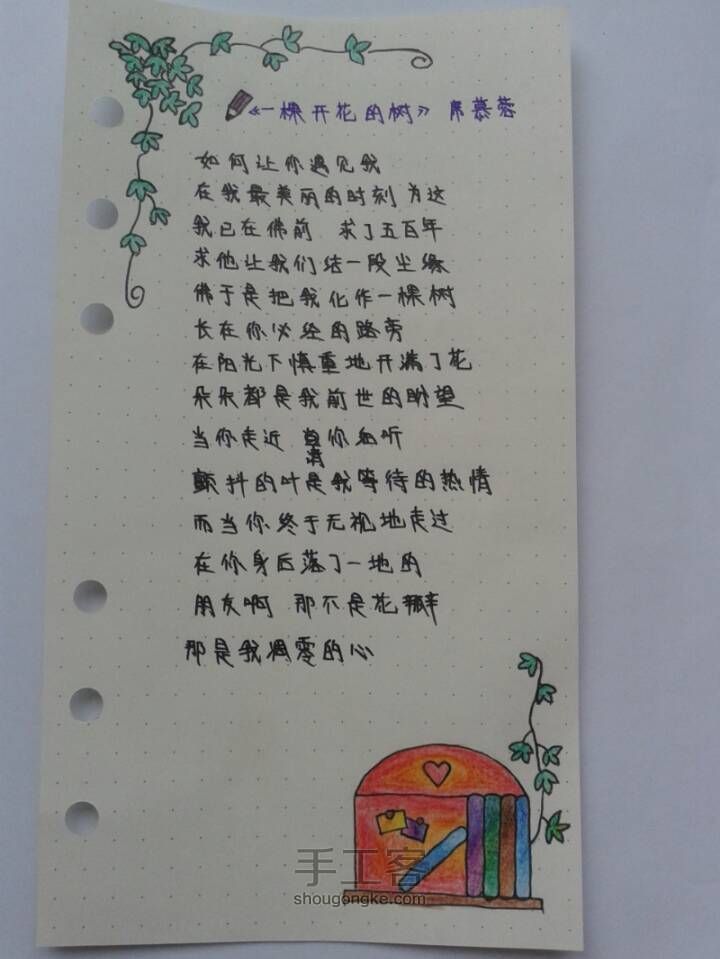 《一棵开花的树》 席慕蓉
如何让你遇见我
在我最美丽的时刻 为这
我已在佛前 求了五百年
求他让我们结一段尘缘
佛于是把我化作一棵树
长在你必经的路旁
在阳光下慎重地开满了花
朵朵都是我前世的盼望
当你走近 请你细听
颤抖的叶是我等待的热情
而当你终于无视地走过
在你身后落了一地的
朋友啊 那不是花瓣
那是我凋零的心
手工客
shougongke.com